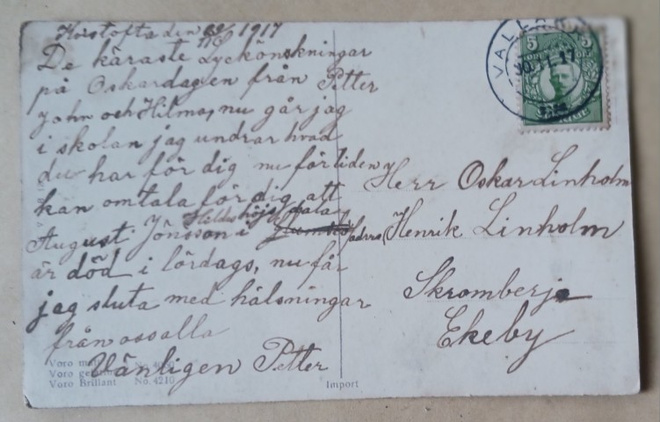 Koistofta den 29/11 1917
De käraste Lyckönskningar
på Oskardagen från Petter
John och Hilma, nu går jag
i skolan jag undrar hvad
du har för dig nu förtiden
kan omtala för dig att
August Jönsson i
är död i lördags, nu får
jag sluta med hälsningar
från oss alla
Vänligen Petter
Voro
Voro
Voro Brillant No. 4210
Import
VALL
5 5
SVERIGE
Herr Oskar Linholm
Henrik Linholm
Skromberja
Ekeby